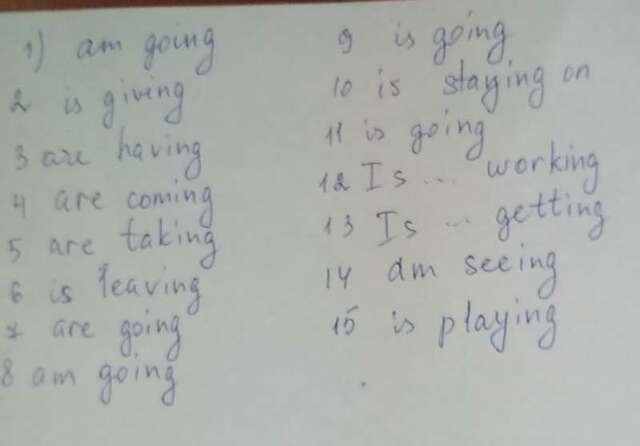 1) am going
2 is giving
3 are having
4 are coming
5 are taking
6 is leaving
7 are going
8 am going
9 is going
10 is staying on
11 is going
12 Is ... working
13 Is ... getting
14 am seeing
15 is playing